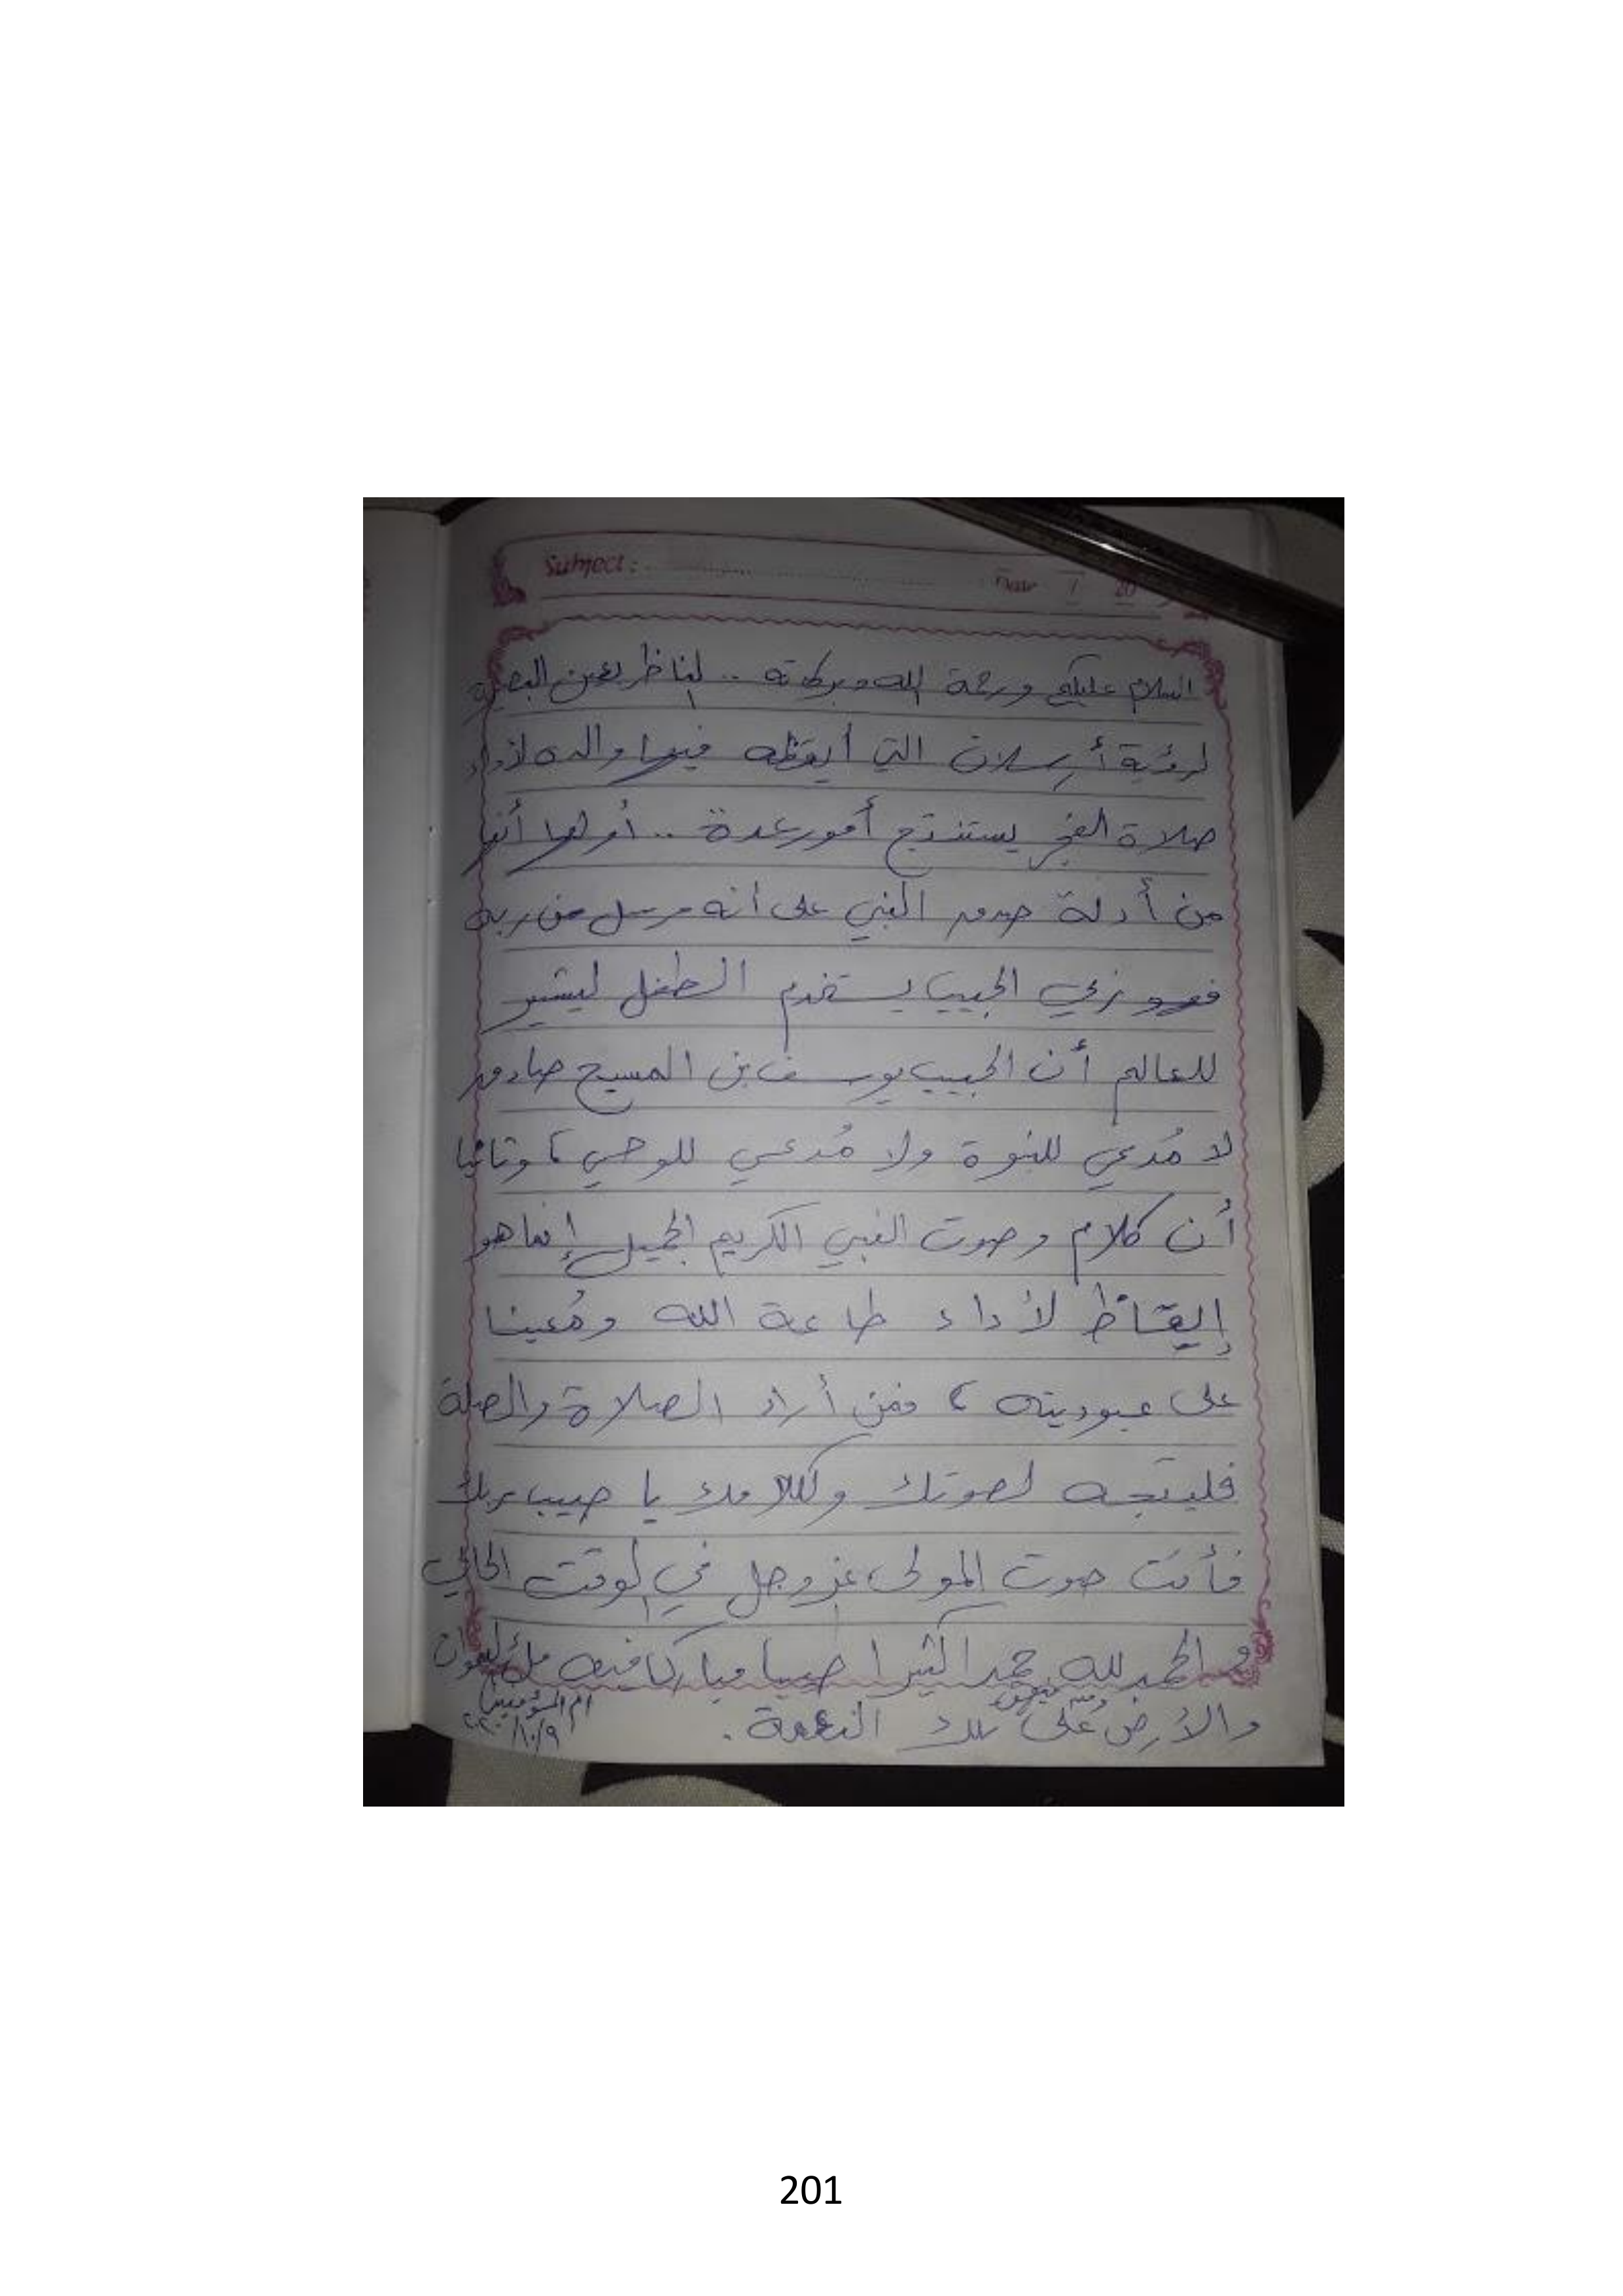 Subject :
20
السلام عليكم ورحمة الله وبركاته .. الناظر بعين البصيرة
لرؤية أرسلان التي أيقظه فيها والده لأداء
صلاة الفجر يستنتج أمور عدة .. أولها أنها
من أدلة صدق النبي على أنه مرسل من ربه
فهو نرى الحبيب يستخدم الطفل ليشير
للعالم أن الحبيب يوسف بن المسيح صادق
لا مُدعي للنبوة ولا مُدعي للوحي ، وثانيا
أن كلام وصوت النبي الكريم الجميل إنما هو
إيقاظ لأداء طاعة الله ومُعينا
على عبوديته ، فمن أراد الصلاة والصلة
فليتجه لصوتك وكلامك يا حبيب ربك
فأنت صوت المولى عز وجل في الوقت الحالي
و الحمد لله حمدا كثيرا طيبا مباركا فيه ملئ السموات
والأرض على تلك النعمة .
أم المؤمنين
٢٠٢٠/١٠/٩
201